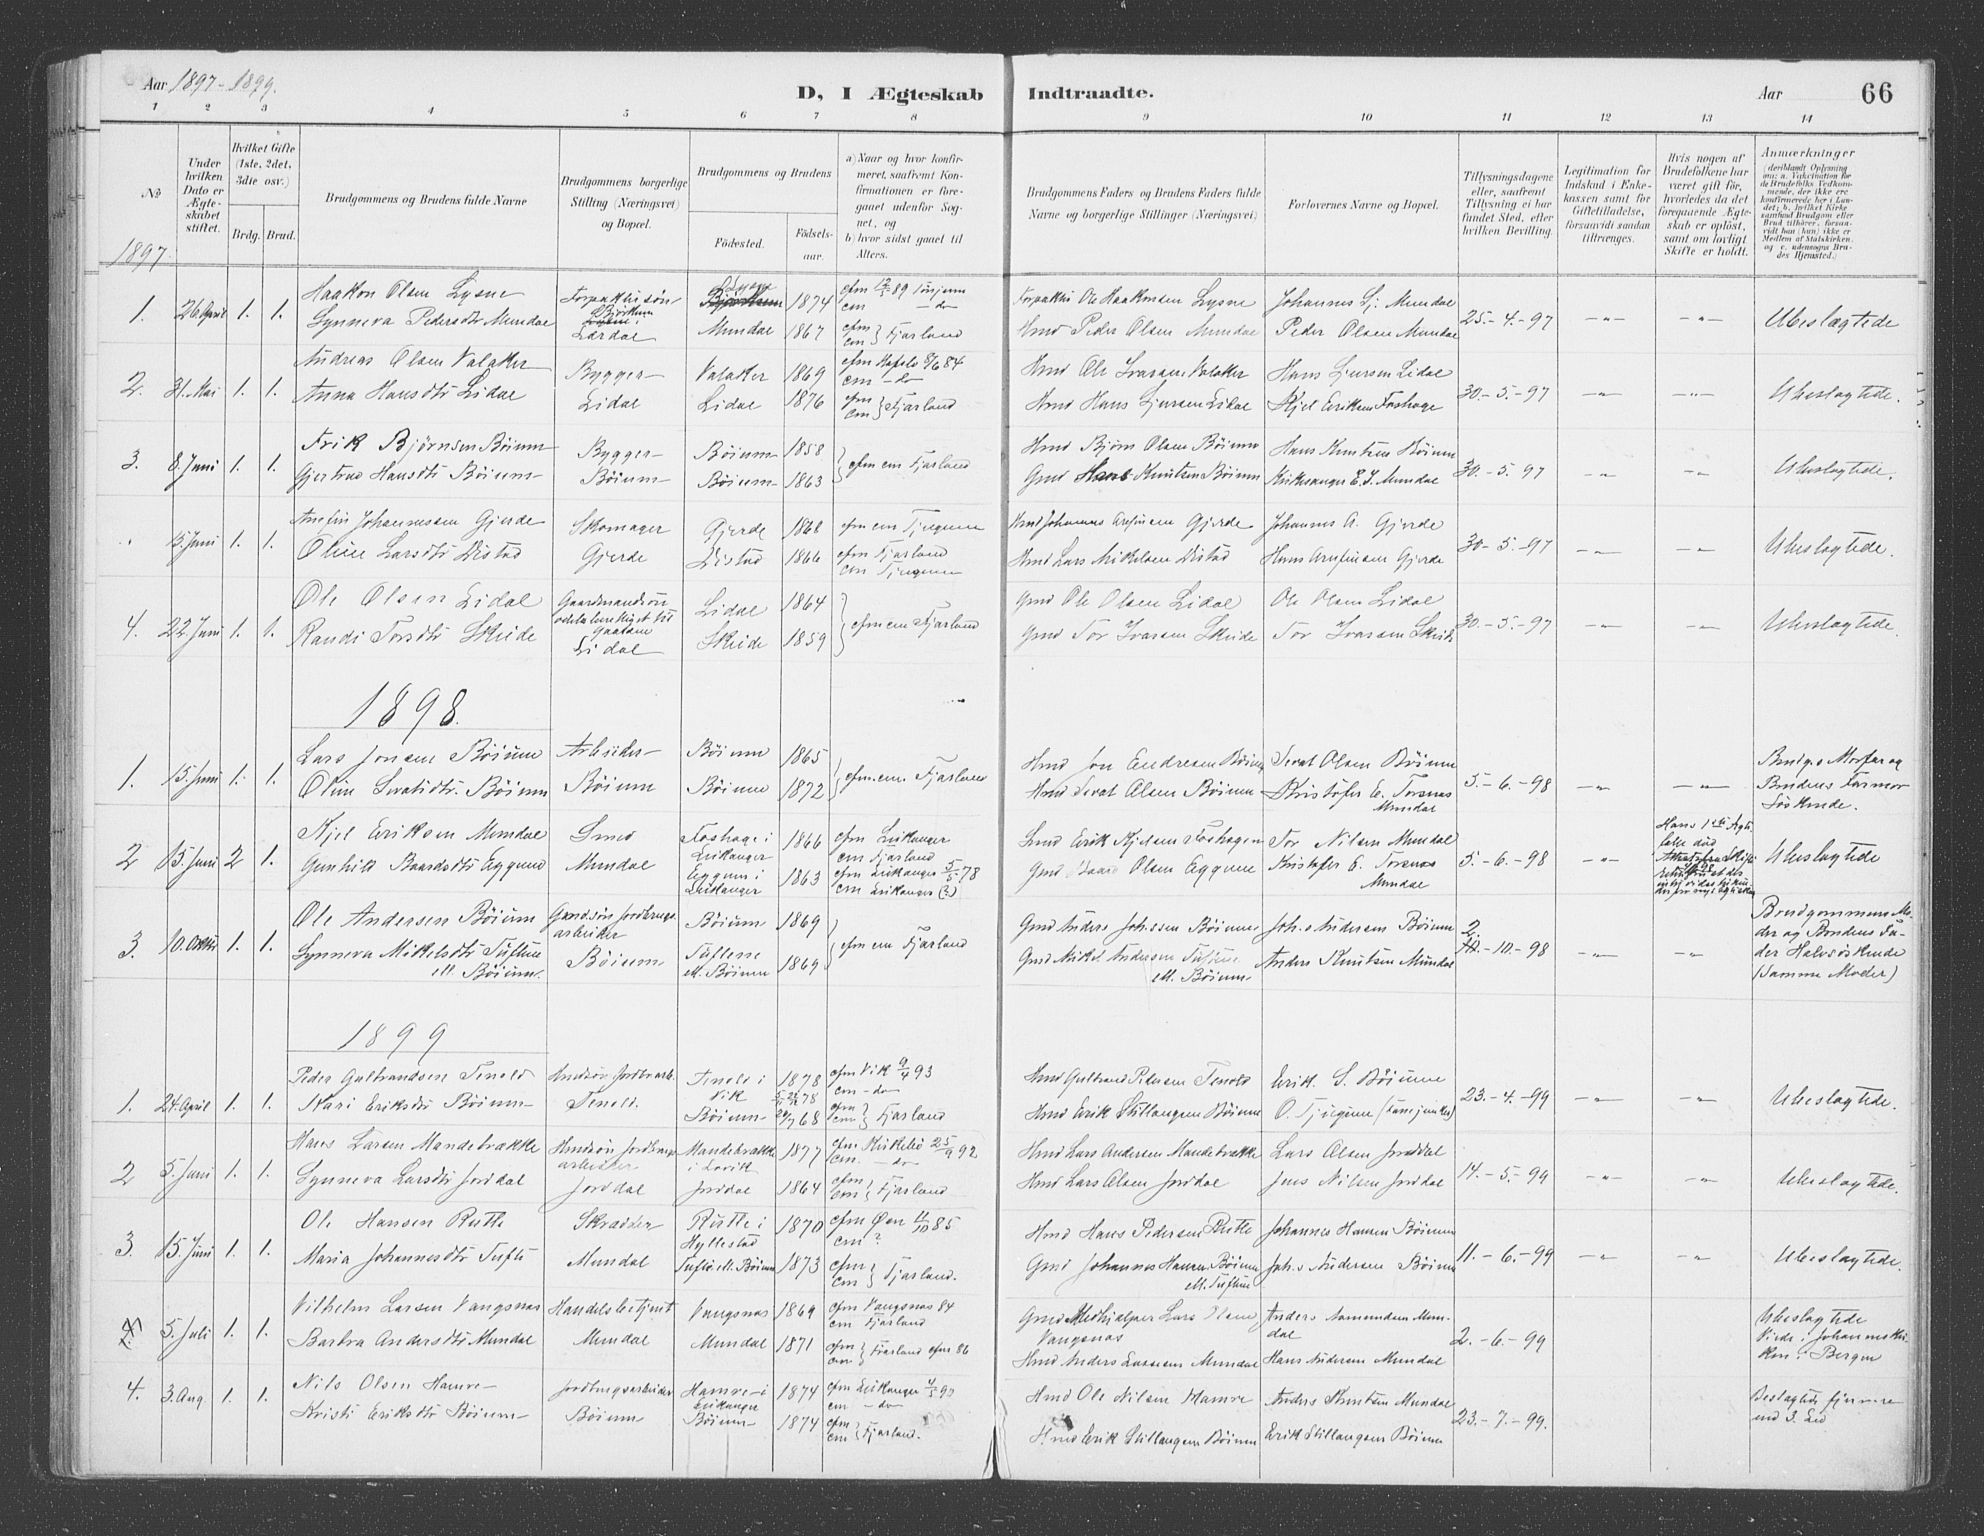 Aar 1897-1899.
D, I Ægteskab Indtraadte.
Aar 66
1 2 3 4 5 6 7 8 9 10 11 12 13 14
No
Under hvilken Dato er Ægteskabet stiftet.
Hvilket Gifte (1ste, 2det, 3die osv.)
Brdg. Brud.
Brudgommens og Brudens fulde Navne
Brudgommens borgerlige Stilling (Næringsvei) og Bopæl.
Brudgommens og Brudens
Födested.
Födselsaar.
a) Naar og hvor konfirmeret, saafremt Konfirmationen er foregaaet udenfor Sognet, og
b) hvor sidst gaaet til Alters.
Brudgommens Faders og Brudens Faders fulde Navne og borgerlige Stillinger (Næringsvei)
Forlovernes Navne og Bopæl.
Tillysningsdagene eller, saafremt Tillysning ei har fundet Sted, efter hvilken Bevilling.
Legitimation for Indskud i Enkekassen samt for Giftetilladelse, forsaavidt saadan tiltrænges.
Hvis nogen af Brudefolkene har været gift för, hvorledes da det foregaaende Ægteskab er oplöst, samt om lovligt Skifte er holdt.
Anmærkninger
1897.
1. 26 April 1. 1. Haakon Olsen Lysne Forpaktersön Lysne 1874 cfm 89 do Forpakter Ole Haakonsen Lysne Johannes Gj. Mundal 25.-4.-97 Ubeslægtede
Synneva Pedersdtr Mundal Lærdal Mundal 1867 cfm cm Fjærland Gmd Peder Olsen Mundal Peder Olsen Mundal
2. 31. Mai 1. 1. Andreas Olsen Valaker Bygger Valaker 1869 cfm Hafslo 8/6 84 cm do Gmd Ole Ivarsen Valaker Hans Sjursen Lidal 30.-5.-97 Ubeslægtede.
Anna Hansdtr Lidal Lidal Lidal 1876 cfm cm Fjærland Gmd Hans Sjursen Lidal Kjel Eriksen Foshage
3. 8. Juni 1. 1. Erik Björnsen Böium Bygger Böium 1858 cfm cm Fjærland Gmd Björn Olsen Böium Hans Knutsen Böium 30.-5.-97 Ubeslægtede.
Gjertrud Hansdtr Böium Böium Böium 1863 Gmd Hans Knutsen Böium Kirkesanger E. J. Mundal
15. Juni 1. 1. Arnfin Johannessen Gjerde Skomager Gjerde 1868 cfm cm Tjugum Gmd Johannes Arnfinsen Gjerde Johannes A. Gjerde 30-5.-97 Ubeslægtede.
Oline Larsdtr Distad Gjerde Distad 1866 cfm Fjærland cm Tjugum Gmd Lars Mikkelsen Distad Hans Arnfinsen Gjerde
4. 22. Juni 1. 1. Ole Olsen Lidal Gaardmandssön Lidal 1864 cfm cm Fjærland Gmd Ole Olsen Lidal Ole Olsen Lidal 30.-5.-97 Ubeslægtede.
Randi Torsdtr Skeide Lidal Skeide 1859 Gmd Tor Ivarsen Skeide Tor Ivarsen Skeide
1898.
1. 15. Juni 1. 1. Lars Jonsen Böium Arbeider Böium 1865 cfm cm Fjærland Gmd Jon Endresen Böium Sevat Olsen Böium 5-6-98 Brudg.s Morfar og
Oline Sevatsdtr. Böium Böium Böium 1872 Gmd Sevat Olsen Böium Kristofer E. Torsnes Mundal Brudens Farmor Söskende.
2 15. Juni 2 1. Kjel Eriksen Mundal Smed Foshage i Leikanger 1866 cfm Leikanger cm Fjærland Gmd Erik Kjelsen Foshagen Tor Nilsen Mundal 5-6-98 Ubeslægtede
Gunhild Baardsdtr Eggum Mundal Eggum i Leikanger 1863 cfm Leikanger 5/5 78 cm Leikanger (?) Gmd Baard Olsen Eggum Kristofer E. Torsnes Mundal
3. 10. Oktbr 1. 1. Ole Andersen Böium Gmdsön Jordbrugsarbeider Böium 1869 cfm cm Fjærland Gmd Anders Johssen Böium Joh.s Andersen Böium 2.-10-98 Brudgommens Moder og Brudens Fader Halvsöskende (Samme Moder)
Synneva Mikelsdtr Tuftene ell. Böium. Böium Tuftene ell. Böium 1869 Gmd Mikel Andersen Tuftene ell. Böium Anders Knutsen Mundal
1899
1. 24. April 1. 1. Peder Gulbrandsen Tenold Gmdssön Jordbr.arb. Tenold i Vik 1878 cfm Vik 9/4 93 cm do Gmd Gulbrand Petersen Tenold Erik S. Böium 23.-4.-99 Ubeslægtede.
Kari Eriksdtr Böium Tenold. Böium 68 cfm cm Fjærland Gmd Erik Stillaugsen Böium O. Tjugum
2 5. Juni 1. 1. Hans Larsen Mandebrække Gmdssön Jordbrugsarbeider Mandebrække i Lavik 1877 cfm Kirkebö 25/9 92 cm. do Gmd Lars Andersen Mandebrække Lars Olsen Jorddal 14-5.-99 Ubeslægtede.
Synneva Larsdtr Jordal Jorddal Jordal 1864 cfm cm Fjærland Gmd Lars Olsen Jordal Jens Nilsen Jordal
3. 15. Juni 1. 1. Ole Hansen Rutle Skrædder Rutle i Hyllestad 1870 cfm Öen 11/10 85 cm ? Gmd Hans Pedersen Rutle Johannes Hansen Böium 11.-6.-99 Ubeslægtede.
Maria Johannesdtr Tufte Mundal Tufte ell. Böium 1873 cfm cm Fjærland. Gmd Johannes Hansen Böium ell. Tuftene Joh.s Andersen Böium
5. Juli 1. 1. Vilhelm Larsen Vangsnes Handelsbetjent Vangsnes 1869 cfm Vangsnes 84 cm Fjærland Gmd Medhjælper Lars Olsen Vangsnes Anders Mundal 2.-6.-99 Ubeslægtede Viede i Johanneskirken i Bergen
Barbra Andersdtr Mundal Mundal Mundal 1871 cfm cm Fjærland cfm 86 Gmd Anders Larssen Mundal Hans Andersen Mundal
4. 3. Aug. 1. 1. Nils Olsen Hamre Jordbrugsarbeider Hamre i Leikanger 1874 cfm Leikanger 90 cm do Gmd Ole Nilsen Hamre Anders Knutsen Mundal 23.-7.-99. Beslægtede fjernere end 3. Led
Kristi Eriksdtr Böium Böium Böium 1874 cfm cm Fjærland. Gmd Erik Stillaugsen Böium Erik Stillaugsen Böium